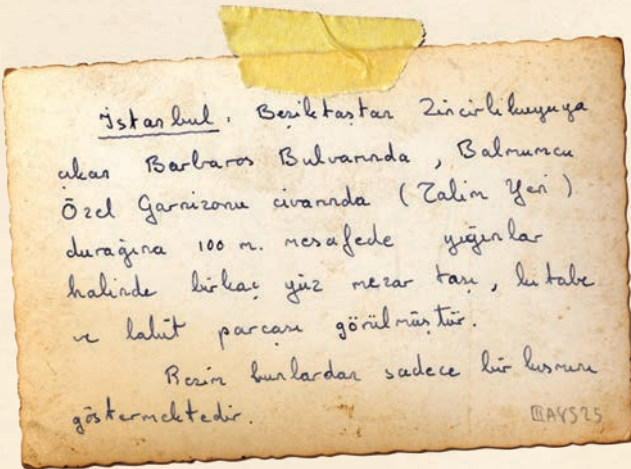 İstanbul. Beşiktaştan Zincirlikuyuya
çıkan Barbaros Bulvarında, Balmumcu
Özel Garnizonu civarında (Talim Yeri)
durağına 100 m. mesafede yığınlar
halinde birkaç yüz mezar taşı, kitabe
ve lahit parçası görülmüştür.
Resim bunlardan sadece bir kısmını
göstermektedir.